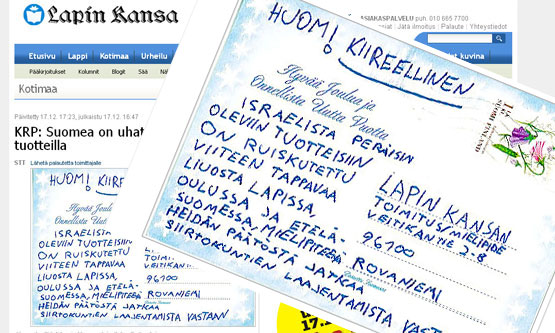 Lapin Kansa
ASIAKASPALVELU puh. 010 665 7700
Jätä ilmoitus | Palaute | Yhteystiedot
Etusivu Lappi Kotimaa Urheilu
kuvina
Pääkirjoitukset Kolumnit Blogit Sää
Kotimaa
Päivitetty 17.12. 17:23, julkaistu 17.12. 16:47
KRP: Suomea on uhat
tuotteilla
STT Lähetä palautetta toimittajalle
HUOM! KIIREE
Hyvää Joulu
Onnellista Uut
ISRAELISTA
OLEVIIN TUOTTEISIIN
ON RUISKUTETTU
VIITEEN TAPPAVAA
LIUOSTA LAPISSA,
OULUSSA JA ETELÄ-
SUOMESSA, MIELIPITEENÄ
HEIDÄN PÄÄTÖSTÄ JATKAA
SIIRTOKUNTIEN LAAJENTAMISTA VASTAAN
LA
TOIMI
VEITIKANTI
96100
ROVANIEMI
HUOM! KIIREELLINEN
Hyvää Joulua ja
Onnellista Uutta Vuotta
ISRAELISTA PERÄISIN
OLEVIIN TUOTTEISIIN
ON RUISKUTETTU
VIITEEN TAPPAVAA
LIUOSTA LAPISSA,
OULUSSA JA ETELÄ-
SUOMESSA, MIELIPITEENÄ
HEIDÄN PÄÄTÖSTÄ JATKAA
SIIRTOKUNTIEN LAAJENTAMISTA VASTAAN
LAPIN KANSAN
TOIMITUS/MIELIPIDE
VEITIKANTIE 2-8
96100
ROVANIEMI
SUOMI FINLAND
17.